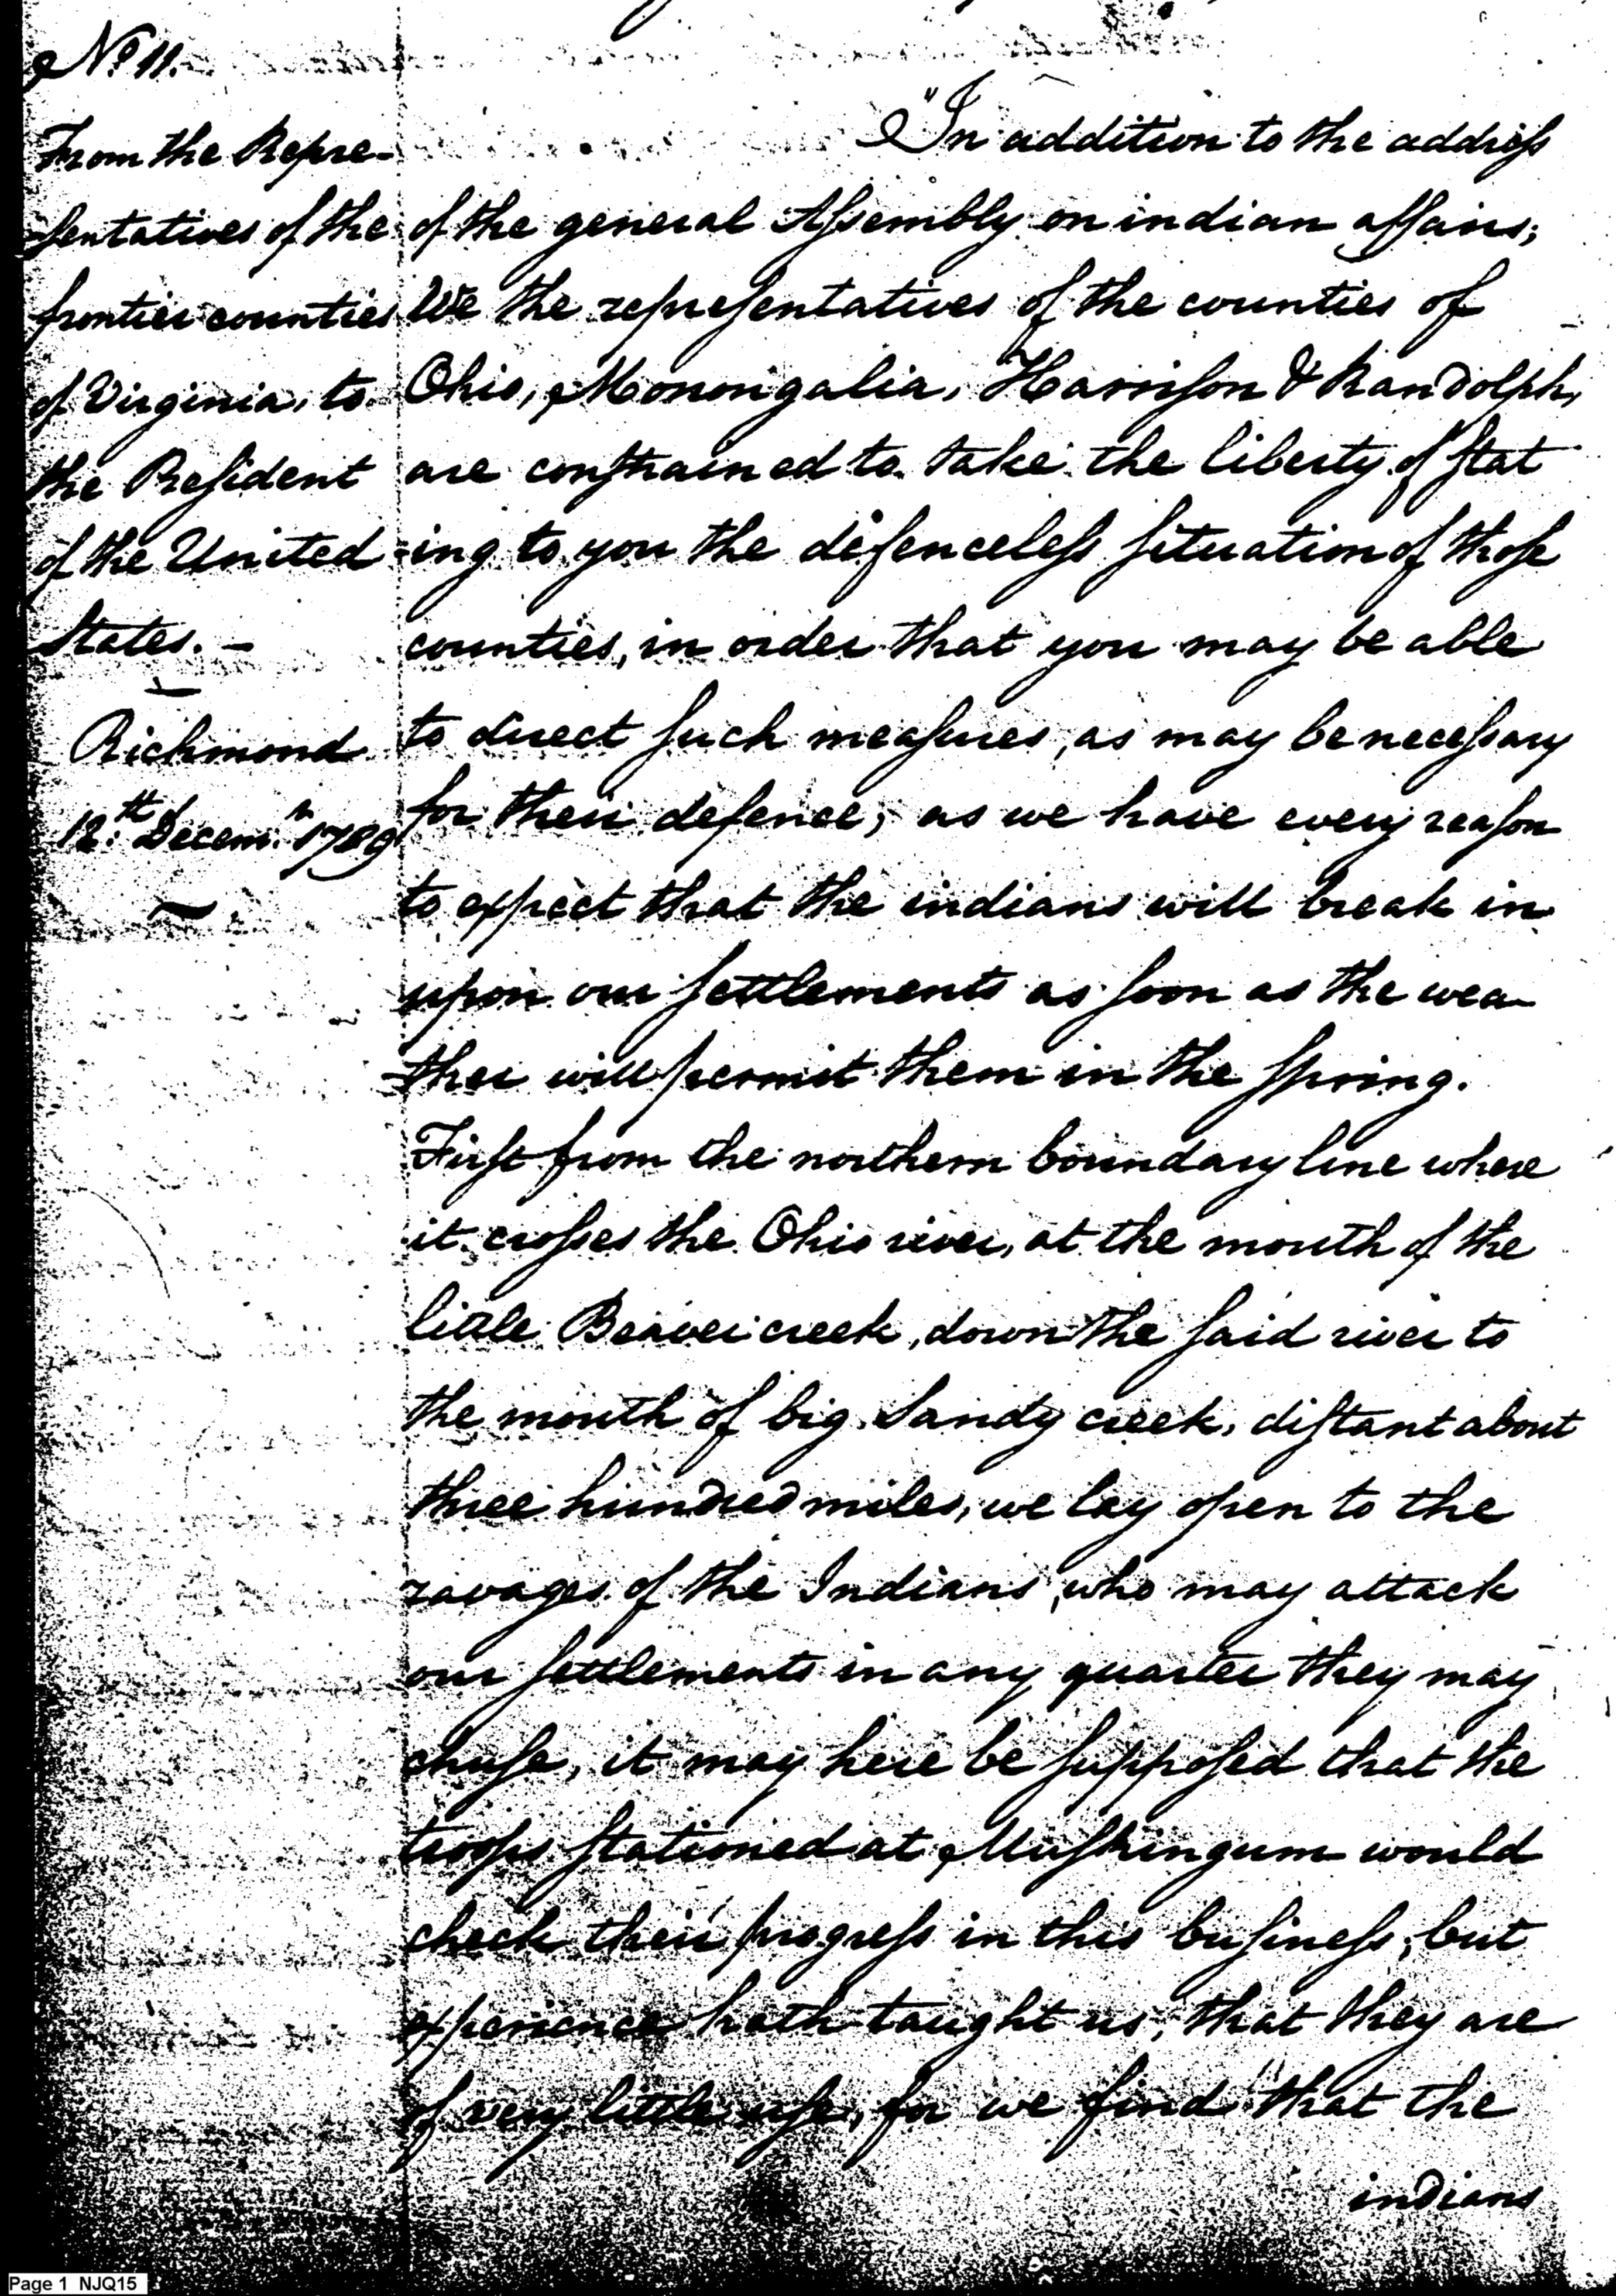 No 11.
From the Repre-
sentatives of the
frontier counties
of Virginia, to
the President
of the United
States. -
Richmond
12th Decemr 1789
"In addition to the address
of the general Assembly on indian affairs;
We the representatives of the counties of
Ohio, Monongalia, Harrison & Randolph,
are constrained to take the liberty of stat
-ing to you the defenceless situation of those
counties, in order that you may be able
to direct such measures, as may be necessary
for their defence; as we have every reason
to expect that the indians will break in
upon our settlements as soon as the wea-
ther will permit them in the spring.
First from the northern boundary line where
it crosses the Ohio river, at the mouth of the
little Beaver creek, down the said river to
the mouth of big Sandy creek, distant about
three hundred miles, we lay open to the
ravages of the Indians, who may attack
our settlements in any quarter they may
chuse, it may here be supposed that the
troops stationed at Muskingum would
check their progress in this business, but
experience hath taught us, that they are
of very little use, for we find that the
indians
Page 1 NJQ15